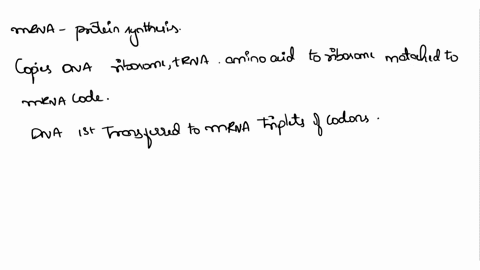 mRNA - protein synthesis.
Copies DNA ribosome, tRNA. amino acid to ribosome matched to
mRNA code.
DNA 1st Transferred to mRNA triplets of codons.